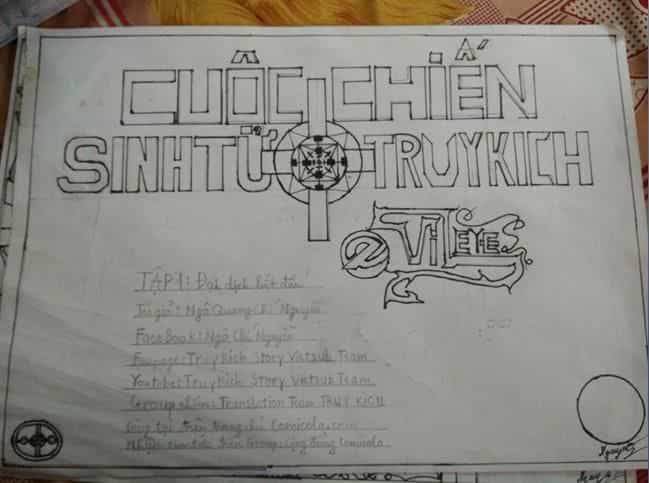 CUỘC CHIẾN
SINH TỬ TRUY KICH
EViL EYES
TẬP 1: Đại dịch bắt đầu
Tác giả: Ngô Quang Chí Nguyễn
FaceBook: Ngô Chí Nguyễn
Fanpage: Truy Kích Story Vietsub Team
Youtube: Truy Kích Story Vietsub Team
Group nhóm: Translation Team TRUY KÍCH
tại trang chủ Comicola.com
Group: Cộng đồng Comicola